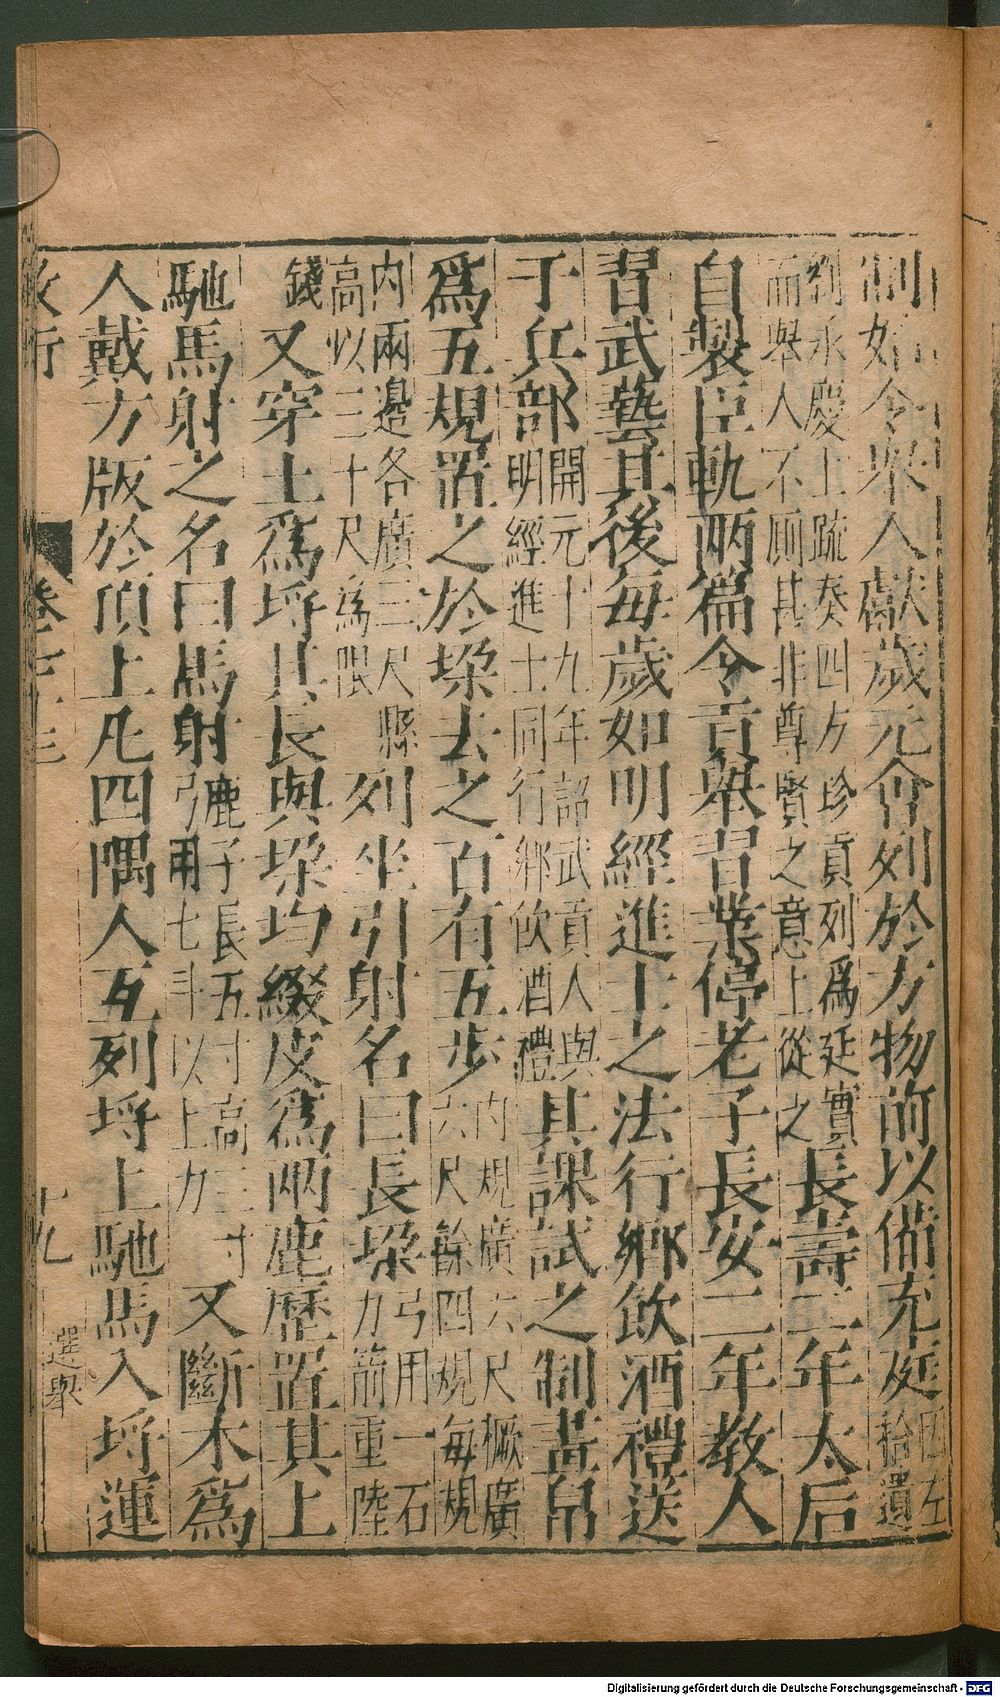 制始令舉人獻歲元會列於方物前以備充庭因左拾遺
劉承慶上疏奏四方珍貢列爲庭實而舉人不廁甚非尊賢之意上從之長壽二年太后
自製臣軌兩篇令貢舉習業停老子長安二年教人
習武藝其後每歲如明經進士之法行鄉飲酒禮送
于兵部開元十九年詔武貢人與明經進士同行鄉飲酒禮其課試之制畫帛
爲五規置之於垛去之百有五步內規廣六尺橛廣六尺餘四規每規
內兩邊各廣三尺縣高以三十尺爲限列坐引射名曰長垛弓用一石力箭重陸
錢又穿土爲埒其長與垛均綴皮爲兩鹿歷置其上
馳馬射之名曰馬射鹿子長五寸高三寸弓用七斗以上力又斷木爲
人戴方版於頂上凡四隅人互列埒上馳馬入埒運
十九
選舉
Digitalisierung gefördert durch die Deutsche Forschungsgemeinschaft - DFG